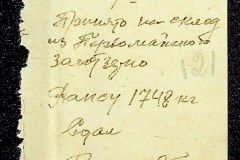 Принято на склад
из Первомайского
Заготзерно
121
Рапсу 1748 кг
Сдал